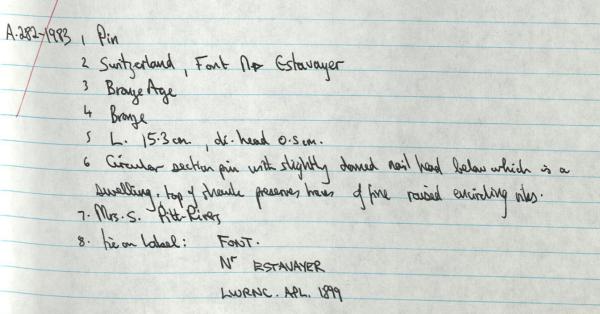 A.282-1983 1 Pin
2 Switzerland, Font Nr Estavayer
3 Bronze Age
4 Bronze
5 L. 15.3cm, dr. head 0.5cm.
6 Circular section pin with slightly domed nail head below which is a
swelling. top of shank preserves traces of fine raised encircling ribs.
7. Mrs. S. Pitt-Rivers
8. Tie on Label: FONT.
Nr ESTAVAYER
APL. 1899